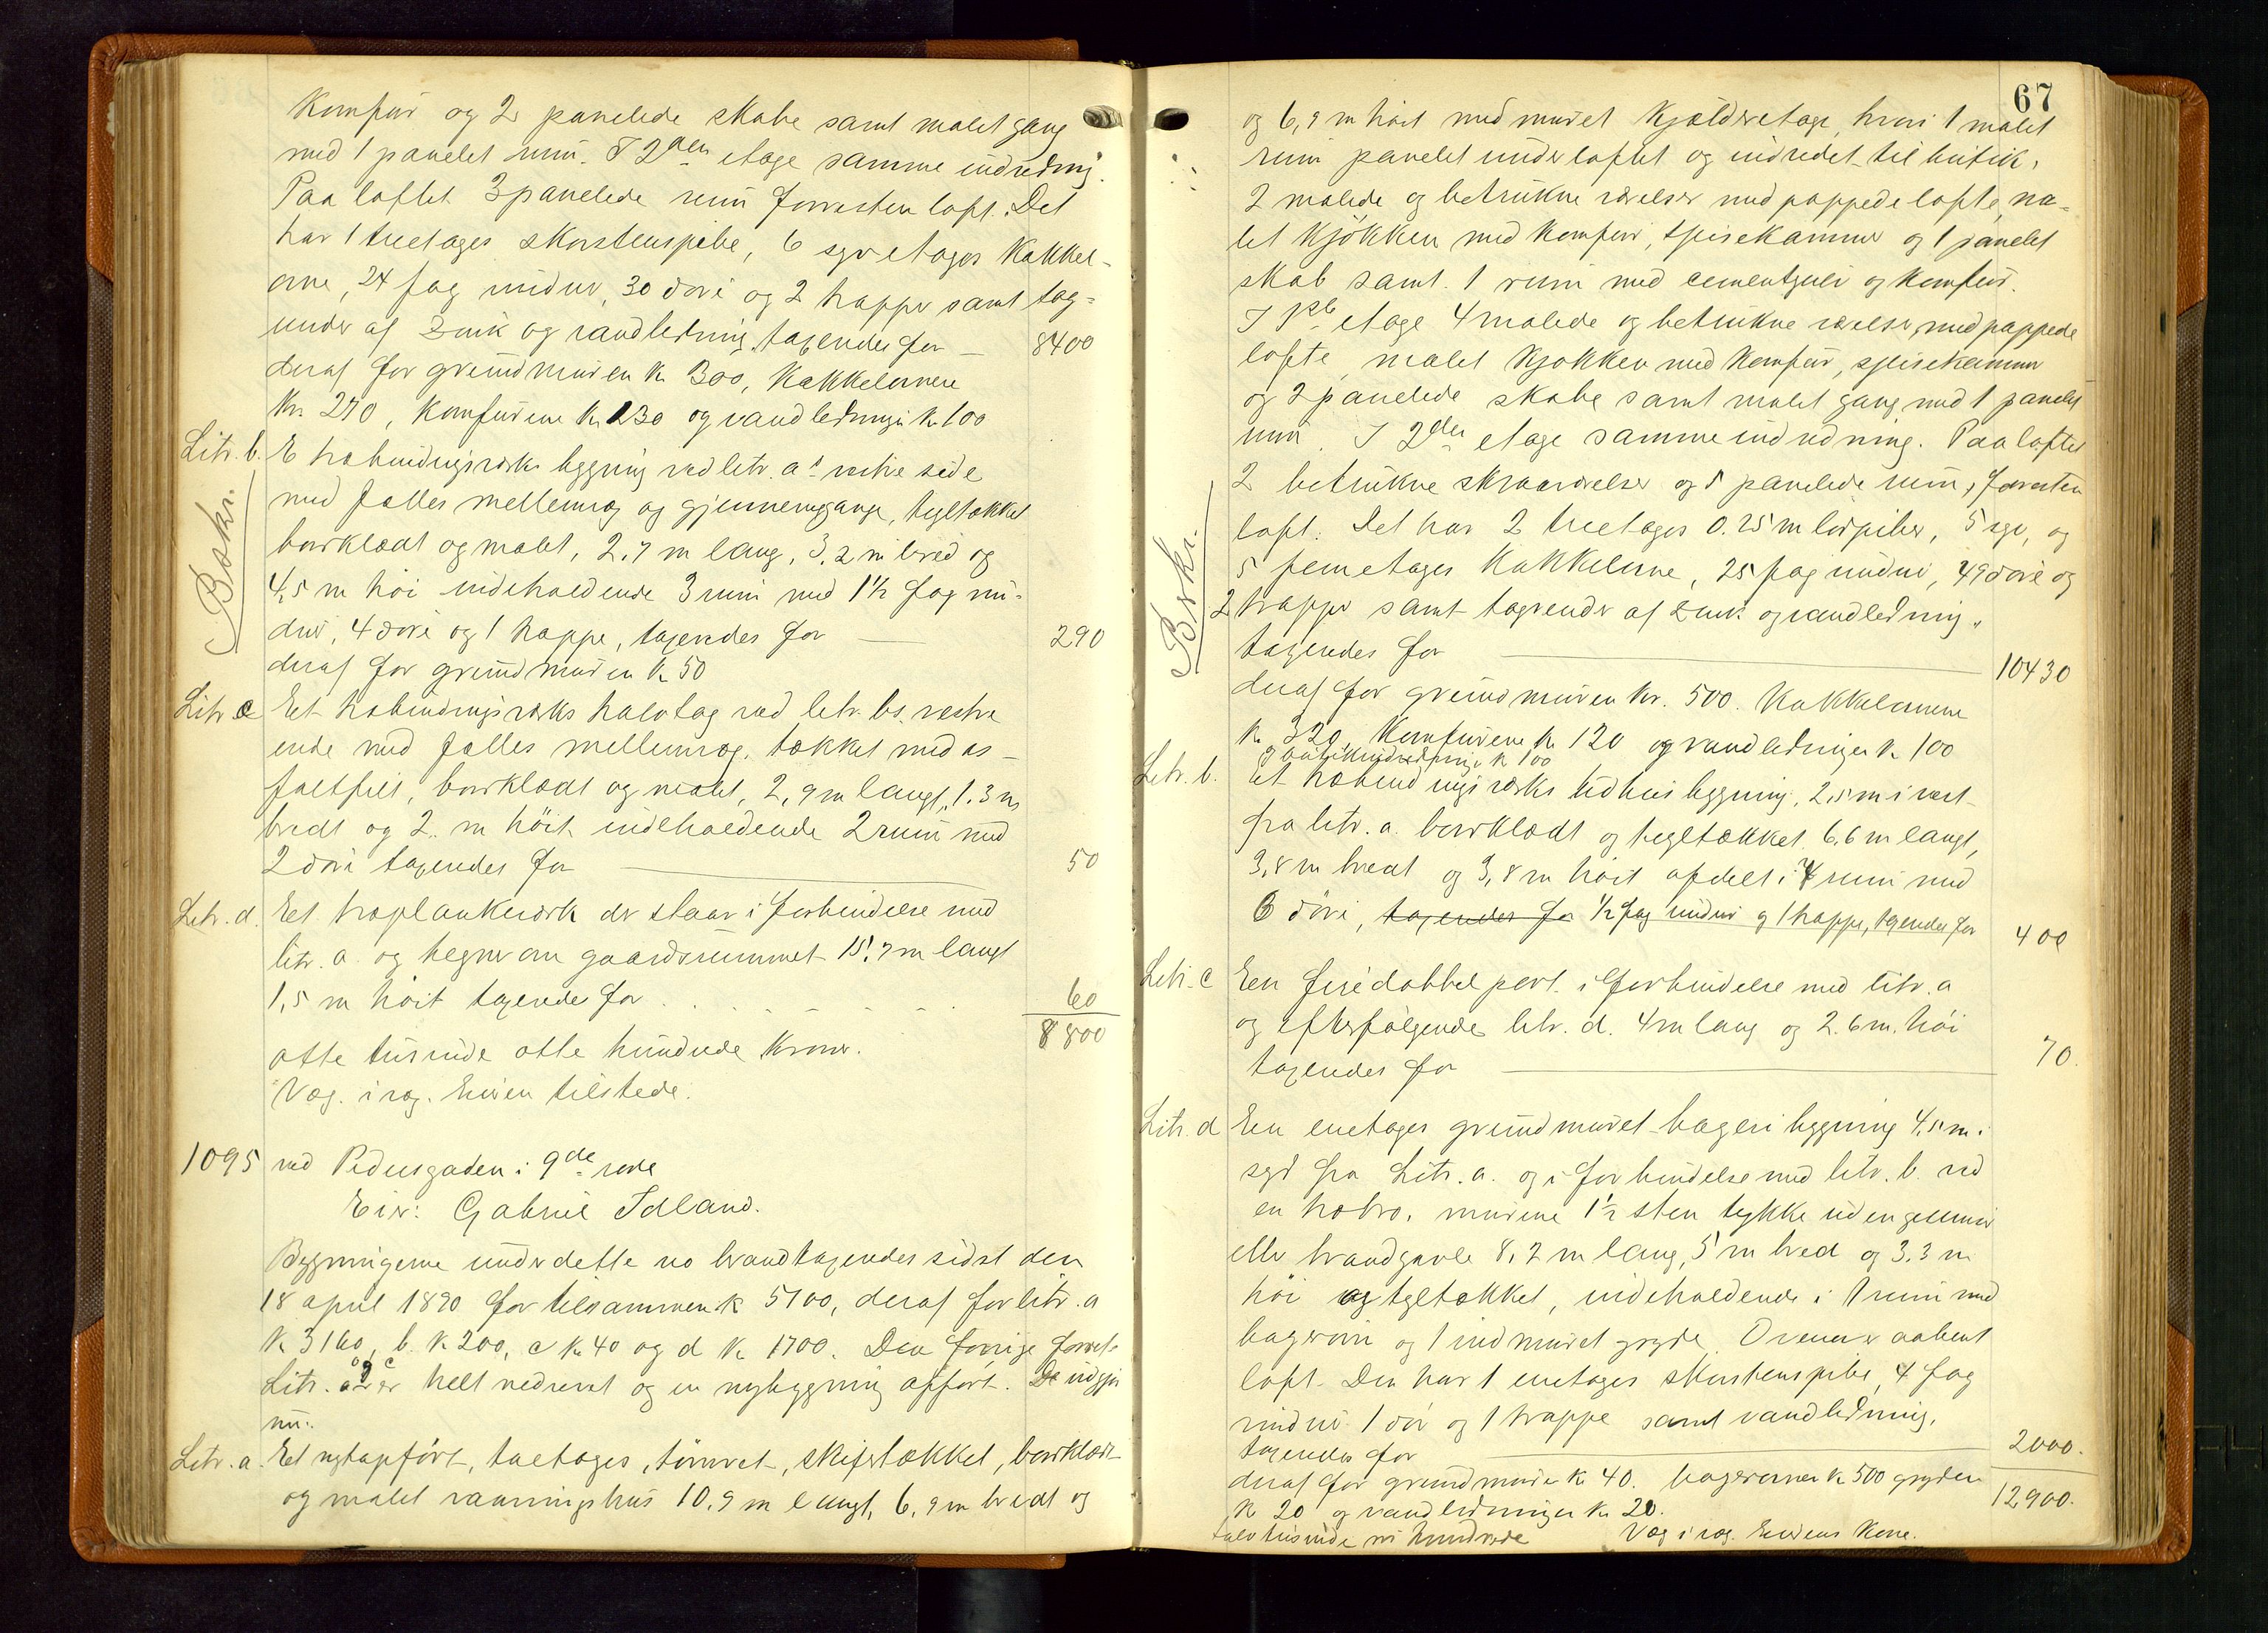 Komfur og 2 panelede skabe samt malet gang
med 1 panelet rum. I 2den etage samme indredning.
Paa loftet 3 panelede rum forresten loft. Det
har 1 treetages skorstenspibe, 6 syvetages kakkel-
ovne, 24 fag vinduer, 30 døre og 2 trapper samt tag-
render af zink og vandledning, taxeredes for — 8400
deraf for grundmuren kr 300, kakkelovnene
kr. 270, komfurene kr 230 og vandledningen kr 100
Litr. b. E bindingsværks bygning ved litr. a's vestre side
Beskr.
med fælles mellemvæg og gjennemgange, tegltækket
bordklædt og malet, 2,7 m lang, 3,2 m bred og
4,5 m høi indeholdende 3 rum med 1½ fag vin-
duer, 4 døre og 1 trappe, taxeredes for — 290
deraf for grundmuren kr 50
Litr c Et træbindingsværks halvtag ved litr. bs. vestre
ende med fælles mellemvæg, tækket med as-
faltfilt, bordklædt og malet, 2,9 m langt, 1.3 m
bredt og 2. m høit indeholdende 2 rum med
2 døre taxeredes for — 50
Litr. d. Et træplankeværk der staar i forbindelse med
litr. a. og hegner om gaardsrummet 15,7 m langt
1,5 m høit taxeredes for 60
8800
otte tusinde otte hundrede kroner.
Væg. i væg. Eieren tilstede.
1095 ved Pedersgaden i 9de rode
Eier: Gabriel Idland.
Bygningerne under dette no brandtaxeredes sidst den
18 april 1890 for tilsammen kr 5100, deraf for litr. a
kr 3160, b. kr 200, c kr 40 og d kr 1700. Den forrige
Litr. a og c er helt nedrevet og en nybygning opført. De udgjør
nu:
Litr. a. Et nytopført, toetages, tømret, skifertækket, bordklædt
og malet vaaningshus 10,9 m langt, 6,9 m bredt og
67
og 6,9 m høit med muret kjælderetage, hvori 1 malet
rum panelet under loftet og indredet til butik,
2 malede og betrukne værelser med pappede lofte, ma-
let kjøkken med komfur, spisekammer og 1 panelet
skab samt 1 rum med cementgulv og komfur.
I 1ste etage 4 malede og betrukne værelser, med pappede
lofte, malet kjøkken med komfur, spisekammer
og 2 panelede skabe samt malet gang med 1 panelet
rum. I 2den etage samme indredning. Paa loftet
2 betrukne skraaværelser og 5 panelede rum, forresten
loft. Det har 2 treetages 0.25 m lørpiber, 5 syv, og
Beskr.
5 femetages kakkelovne, 25 fag vinduer, 49 døre og
2 trapper samt tagrender af zink og vandledning,
taxeredes for — 10430
deraf for grundmuren kr. 500. Kakkelovnene
kr. 320, komfurene kr 120 og vandledningen kr 100
og butikindredning kr 100
Litr. b. Et træbindingsværks udhusbygning, 2,5 m i vest
fra litr. a. bordklædt og tegltækket 6,6 m langt,
3,8 m bredt og 3,8 m høit afdelt i 4 rum med
6 døre, taxeredes for ½ fag vinduer og 1 trappe, taxeredes for 400
Litr. c En dobbel port i forbindelse med litr. a
og efterfølgende litr. d. 4 m lang og 2.6 m. høi
taxeredes for — 70.
Litr. d En enetages grundmuret bageribygning 4,5 m i
syd fra Litr. a. og i forbindelse med litr. b. ved
en træbro. murene 1½ sten tykke uden gesimser
eller brandgavle 8,2 m lang, 5 m bred og 3.3 m
høi og tegltækket, indeholdende i 1 rum med
bagerovn og 1 indmuret gryde. Ovenover aabent
loft. Den har 1 enetages skorstenspibe, 4 fag
vinduer 1 dør og 1 trappe samt vandledning,
taxeredes for — 2000.
deraf for grundmuren kr 40. bagerovnen kr 500 gryden
kr 20 og vandledningen kr 20. 12900.
tolv tusinde ni hundrede Væg i væg. Eierens kone.